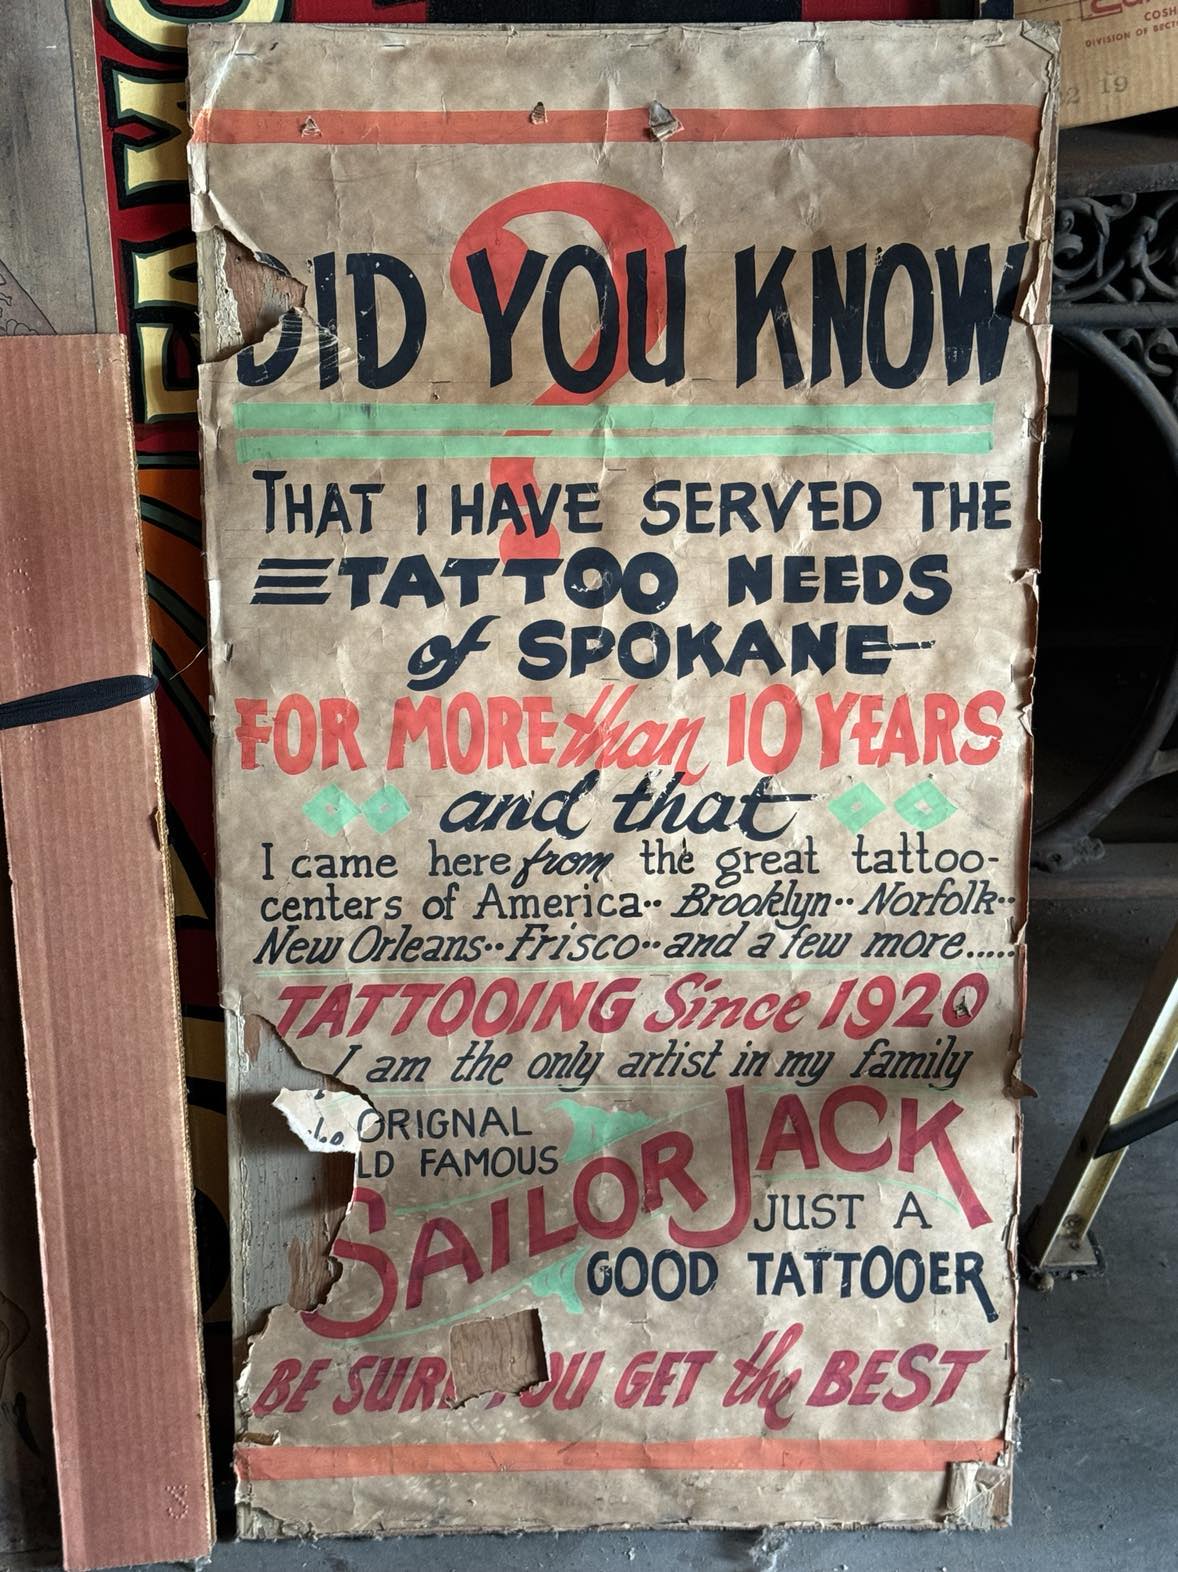 DID YOU KNOW
?
THAT I HAVE SERVED THE
TATTOO NEEDS
of SPOKANE
FOR MORE than 10 YEARS
and that
I came here from the great tattoo-
centers of America·· Brooklyn·· Norfolk··
New Orleans·· Frisco·· and a few more.....
TATTOOING Since 1920
I am the only artist in my family
ORIGNAL
LD FAMOUS
SAILOR JACK
JUST A
GOOD TATTOOER
BE SUR OU GET the BEST
COSH
DIVISION OF SECT
2 19